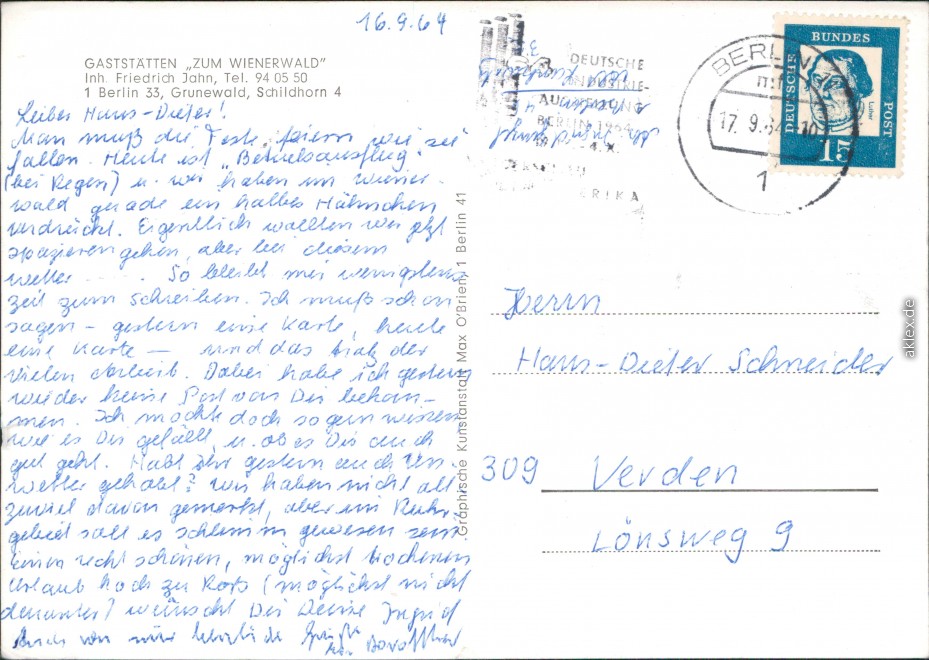 16.9.64
GASTSTÄTTEN „ZUM WIENERWALD"
Inh. Friedrich Jahn, Tel. 94 05 50
1 Berlin 33, Grunewald, Schildhorn 4
Lieber Hans-Dieter!
Man muß die Feste feiern wie sie
fallen. Heute ist „Betriebsausflug"
(bei Regen) u. wir haben im Wiener-
wald gerade ein halbes Hähnchen
verdrückt. Eigentlich wollten wir jetzt
spazieren gehen, aber bei diesem
Wetter . . . . So bleibt mir wenigstens
Zeit zum Schreiben. Ich muß schon
sagen – gestern eine Karte, heute
eine Karte — und das trotz der
vielen Arbeit. Dabei habe ich gestern
wieder keine Post von Dir bekom-
men. Ich möchte doch so gern wissen
wie es Dir gefällt u. ob es Dir auch
gut geht. Habt Ihr gestern auch Un-
wetter gehabt? Wir haben nicht all-
zuviel davon gemerkt, aber im Ruhr-
gebiet soll es schlimm gewesen sein.
Einen recht schönen, möglichst trockenen
Urlaub hoch zu Roß (möglichst nicht
darunter) wünscht Dir Deine Ingrid
Auch von mir herzliche Grüße
Graphische Kunstanstalt Max O'Brien, 1 Berlin 41
DEUTSCHE
INDUSTRIE-
AUSSTELLUNG
BERLIN 1964
BERLIN
17. 9. 64
1
BUNDES
DEUTSCHE
POST
Luther
15
Herrn
Hans-Dieter Schneider
309 Verden
Lönsweg 9
aklex.de